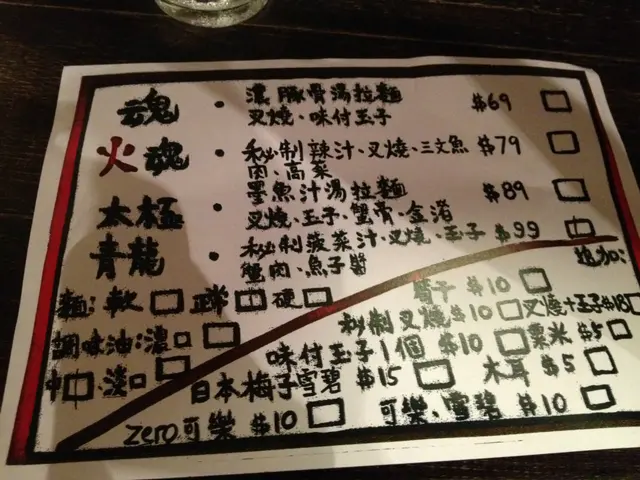 魂 · 濃豚骨湯拉麵 $69
叉燒、味付玉子
火魂 · 秘制辣汁、叉燒、三文魚 $79
肉、高菜
太極 · 墨魚汁湯拉麵 $89
叉燒、玉子、蟹骨、金渚
青龍 · 秘制菠菜汁、叉燒、玉子 $99
蟹肉、魚子醬
追加:
麵: 軟 正常 硬
筍干 $10
秘制叉燒 $10 叉燒+玉子 $18
調味油: 濃口
味付玉子1個 $10 粟米 $5
中 淡口
日本梅子雪碧 $15 木耳 $5
zero可樂 $10 可樂、雪碧 $10